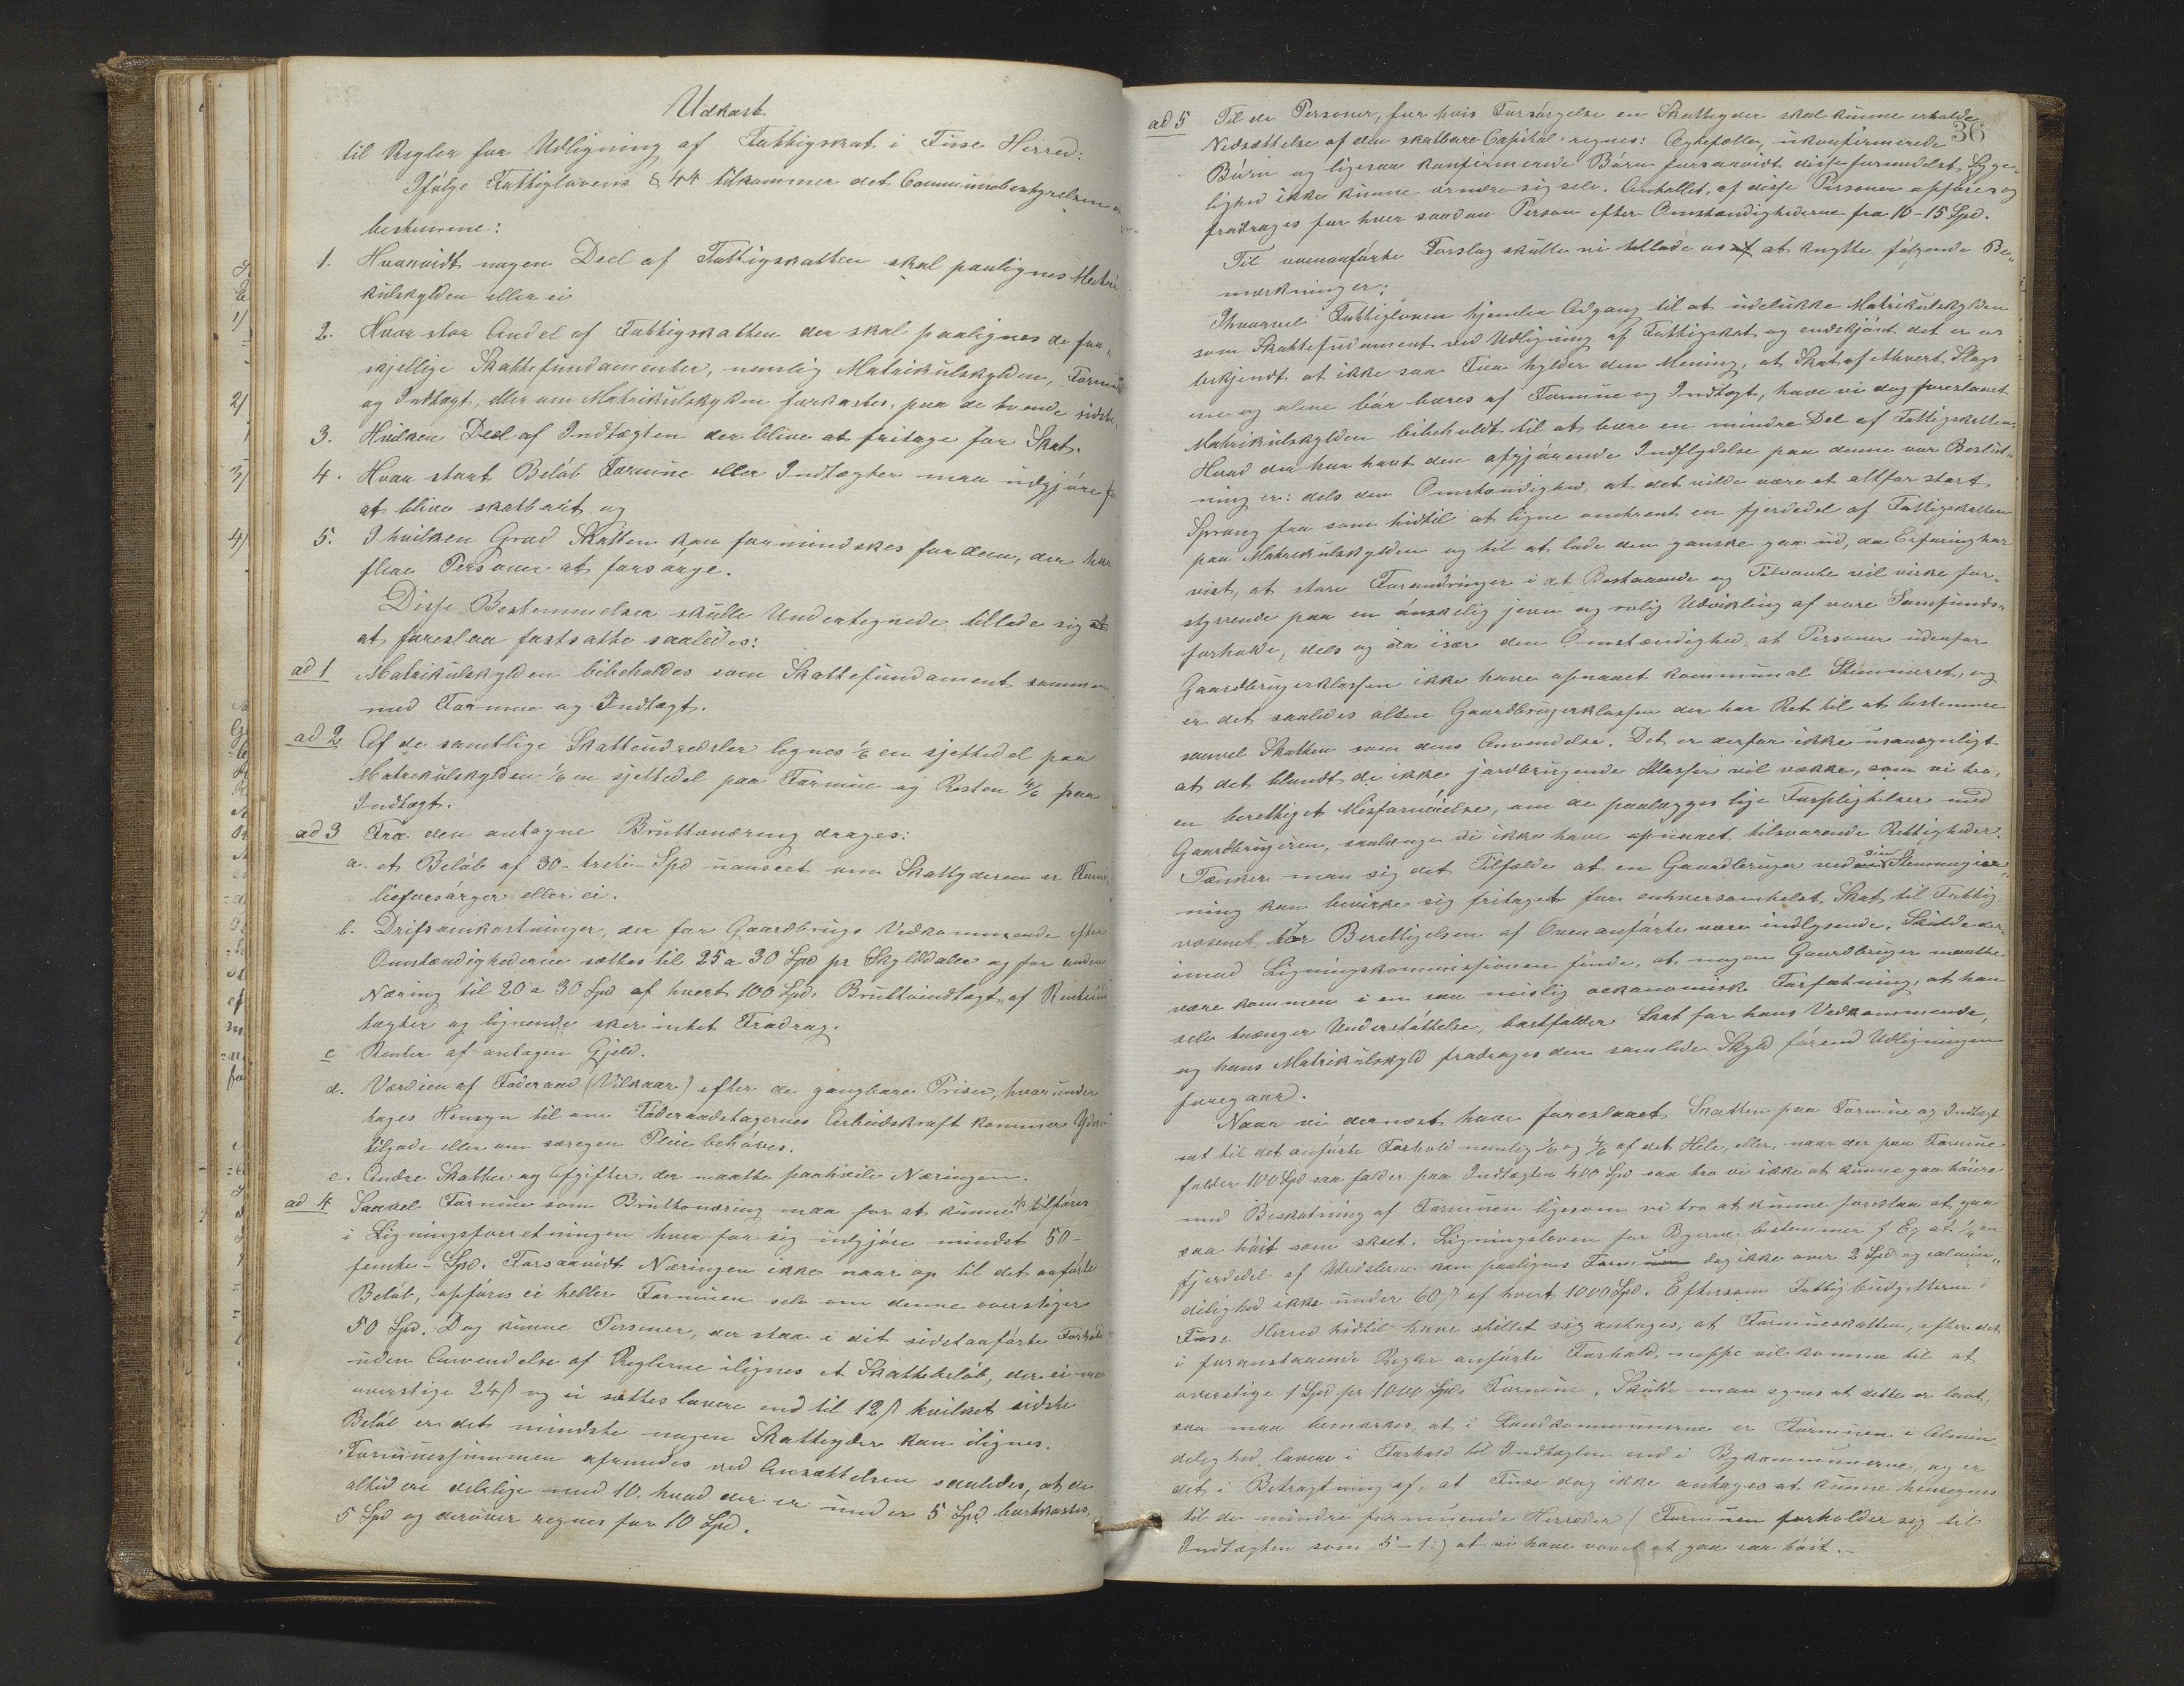 Udkast
til Regler for Udligning af Fattigskat i Fuse Herred:
Ifølge Fattiglovens § 44 tilkommer det Communebestyrelsen at
bestemme:
1. Hvorvidt nogen Deel af Fattigskatten skal paalignes Matri
kulskylden eller ei
2. Hvor stor Andel af Fattigskatten der skal paalignes de for„
skjellige Skattefundamenter, nemlig Matrikulskylden, Formue
og Indtægt, eller om Matrikulskylden forkastes, paa de tvende sidste.
3. Hvilken Deel af Indtægten der bliver at fritage for Skat.
4. Hvor stort Beløb Formue eller Indtægter maa udgjøre for
at blive skatbart og
5. I hvilken Grad Skatten kan formindskes for dem, der har
flere Personer at forsørge.
Disse Bestemmelser skulle Undertegnede tillade sig at
at foreslaa fastsatte saaledes:
ad 1 Matrikulskylden bibeholdes som Skattefundament sammen
med Formue og Indtægt.
ad 2 Af de samtlige Skatteudredsler lægnes 1/6 en sjettedel paa
Matrikulskylden 1/6 en sjettedel paa Formue og Resten 4/6 paa
Indtægt.
ad 3 Fra den antagne Bruttonæring drages:
a. et Beløb af 30 - treti - Spd uanseet om Skatyderen er Fami„
lieforsørger eller ei.
b. Driftsomkostninger, der for Gaardbrugs Vedkommende efter
Omstændighederne sættes til 25 a 30 Spd pr Skylddaler og for anden
Næring til 20 a 30 Spd af hvert 100 Spd. Bruttoindtægt, af Renteind
tægter og lignende sker intet Fradrag.
c Renter af antagen Gjeld.
d. Værdien af Føderaad (Vilkaar) efter de gangbare Priser, hvorunder
tages Hensyn til om Føderaadstagernes Arbeidskraft kommer Yderen
tilgode eller om særegen Pleie behøves.
e. Andre Skatter og Afgifter, der maatte paahvile Næringen.
ad 4 Saavel Formue som Bruttonæring maa for at kunne tilføres
i Ligningsforretningen hver for sig udgjøre mindst 50 -
femti - Spd. Forsaavidt Næringen ikke naar op til det anførte
Beløb, opføres ei heller Formuen selv om denne overstiger
50 Spd. Dog kunne Personer, der staa i dit sidstanførte Forhold
uden Anvendelse af Reglerne ilignes et Skattebeløb, der ei maa
overstige 24 ß og ei sættes lavere end til 12 ß hvilket sidste
Beløb er det mindste nogen Skatteyder kan ilignes.
Formuessummen afrundes ved Ansættelsen saaledes, at de
altid ere delelige med 10. hvad der er under 5 Spd. bortkastes,
5 Spd og derover regnes for 10 Spd.
36
ad 5 Til de Personer, for hvis Forsørgelse en Skatteyder skal kunne erholde
Nedsættelse af den skatbare Capital regnes: Ægtefæller, ukonfirmerede
Børn og ligesaa konfirmerede Børn forsaavidt disse formedelst Syge„
lighed ikke kunne ernære sig selv. Antallet af disse Personer opføres og
fradrages for hver saadan Person efter Omstændighederne fra 10 - 15 Spd.
Til ovenanførte Forslag skulle vi tillade os at knytte følgende Be„
mærkninger:
Ihvorvel Fattigloven hjemler Adgang til at udelukke Matrikulskylden
som Skattefundament ved Udligning af Fattigskat og endskjønt det er os
bekjendt at ikke saa Faa hylder den Mening, at Skat af ethvert Slags
ene og alene bør bæres af Formue og Indtægt, have vi dog foreslaaet
Matrikulskylden bibeholdt til at bære en mindre Del af Fattigskatten.
Hvad der har havt den afgjørende Indflydelse paa denne vor Beslut„
ning er: dels den Omstændighed, at det vilde være et altfor stort
Sprang fra som hidtil at ligne omtrent en fjerdedel af Fattigskatten
paa Matrikulskylden og til at lade den ganske gaa ud, da Erfaring har
vist, at store Forandringer i det Bestaaende og Tilvante vil virke for„
styrrende paa en ønskelig jevn og rolig Udvikling af vore Samfunds„
forholde, dels og da især den Omstændighed, at Personer udenfor
Gaardbrugerklassen ikke have opnaaet kommunal Stemmeret, og
er det saaledes alene Gaardbrugerklassen der har Ret til at bestemme
saavel Skatten som dens Anvendelse. Det er derfor ikke usansynligt
at det blandt de ikke jordbrugende Klasser vil vække, som vi tro,
en berettiget Misfornøielse, om de paalægges lige Forpligtelser med
Gaardbrugeren, saalænge de ikke have opnaaet tilsvarende Rettigheder.
Tænker man sig det Tilfælde at en Gaardbruger ved sin Stemmegiv„
ning kan bevirke sig fritaget for enhversomhelst Skat til Fattig
væsenet, tør Berettigelsen af Ovenanførte være indlysende. Skulde der„
imod Ligningskommissionen finde, at nogen Gaardbruger maatte
være kommen i en saa mislig oekonomisk Forfatning, at han
selv trænger Understøttelse, bortfalder Skat for hans Vedkommende,
og hans Matrikulskyld fradrages den samlede Skyld førend Udligningen
foregaar.
Naar vi dernæst have foreslaaet Skatten paa Formue og Indtægt
sat til det anførte Forhold nemlig 1/6 og 4/6 af det Hele, eller, naar der paa Formue
falder 100 Spd saa falder paa Indtægten 400 Spd saa tro vi ikke at kunne gaa høiere
med Beskatning af Formuen ligesom vi tro at kunne foreslaa at gaa
saa høit som skeet. Ligningsloven for Byerne bestemmer f Ex at 1/4 en
fjerdedel af Udredslerne kan paalignes Formuen dog ikke over 2 Spd og i almin„
delighed ikke under 60 ß af hvert 1000 Spd. Eftersom Fattigbudgetterne i
Fuse Herred hidtil have stillet sig antages, at Formueskatten, efter det
i foranstaaende Regler anførte Forhold, neppe vil komme til at
overstige 1 Spd pr 1000 Spds Formue. Skulde man synes at dette er lavt,
saa maa bemærkes, at i Landkommunerne er Formuen i Almin„
delighed lavere i Forhold til Indtægten end i Bykommunerne, og er
det i Betragtning af, at Fuse dog ikke antages at kunne henregnes
til de mindre formuende Herreder (Formuen forholder sig til
Indtægten som 5 - 1:) at vi have vovet at gaa saa høit. -